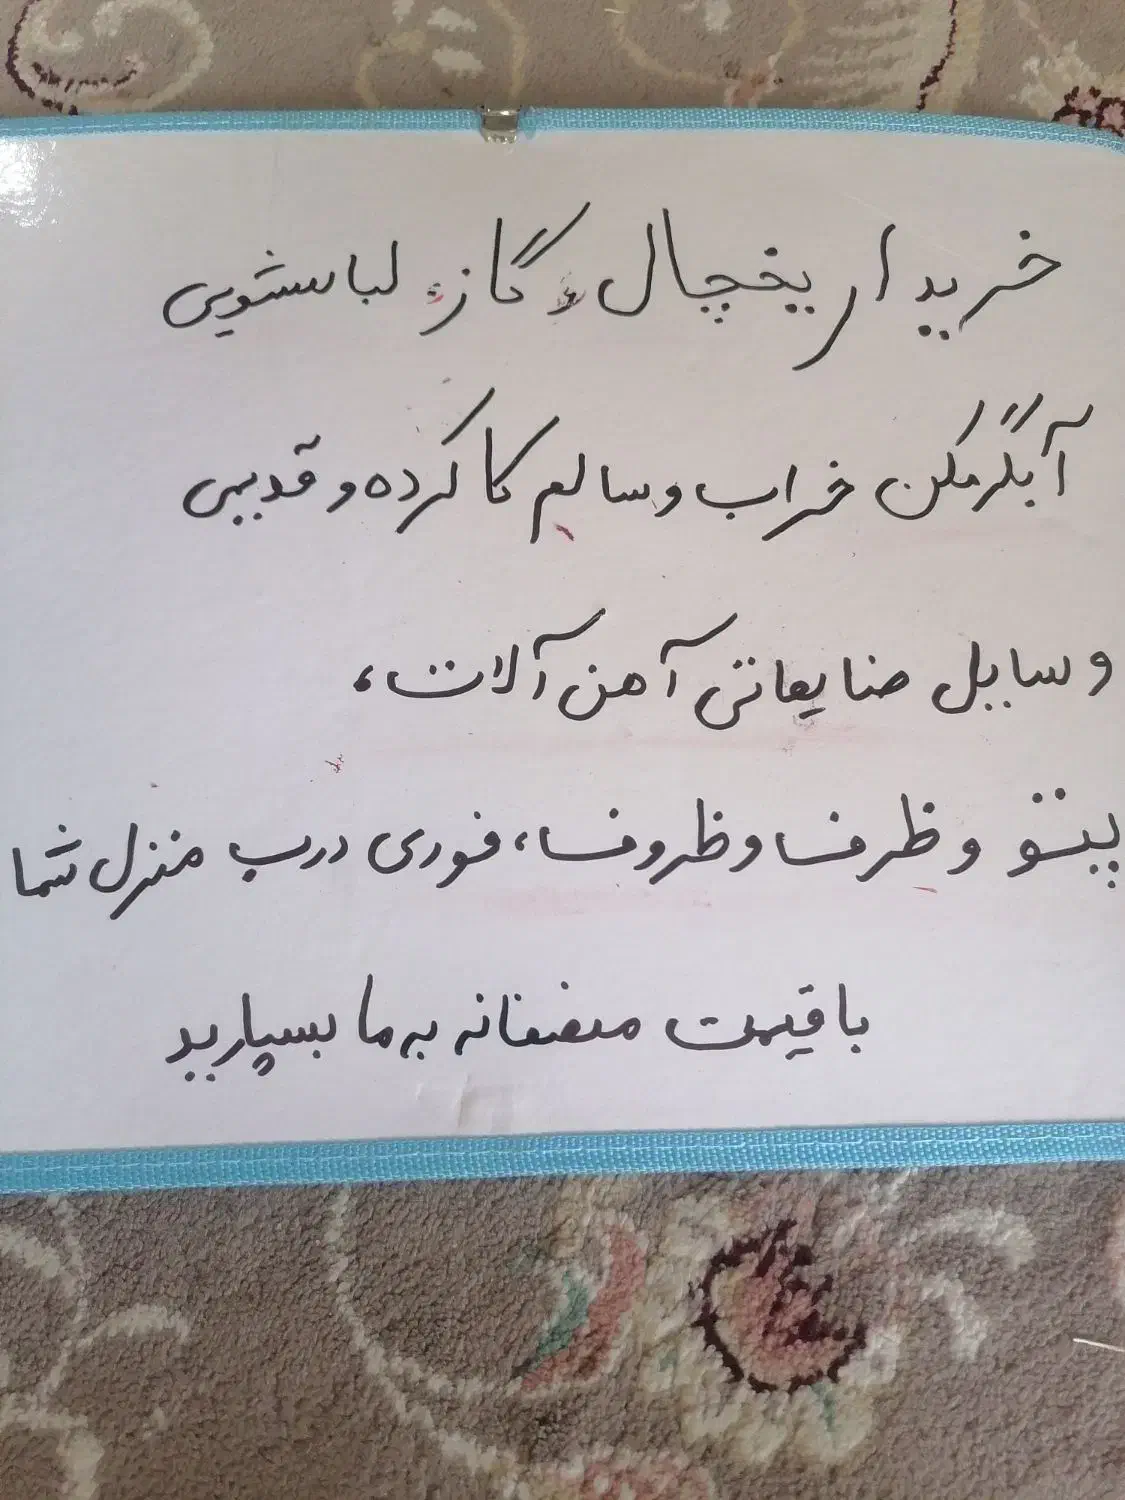 خریدار یخچال، گاز، لباسشویی
آبگرمکن خراب و سالم کاکرده و قدیمی
وسایل ضایعاتی آهن آلات،
پیتو و ظرف و ظروف، فوری درب منزل شما
با قیمت منصفانه به ما بسپارید